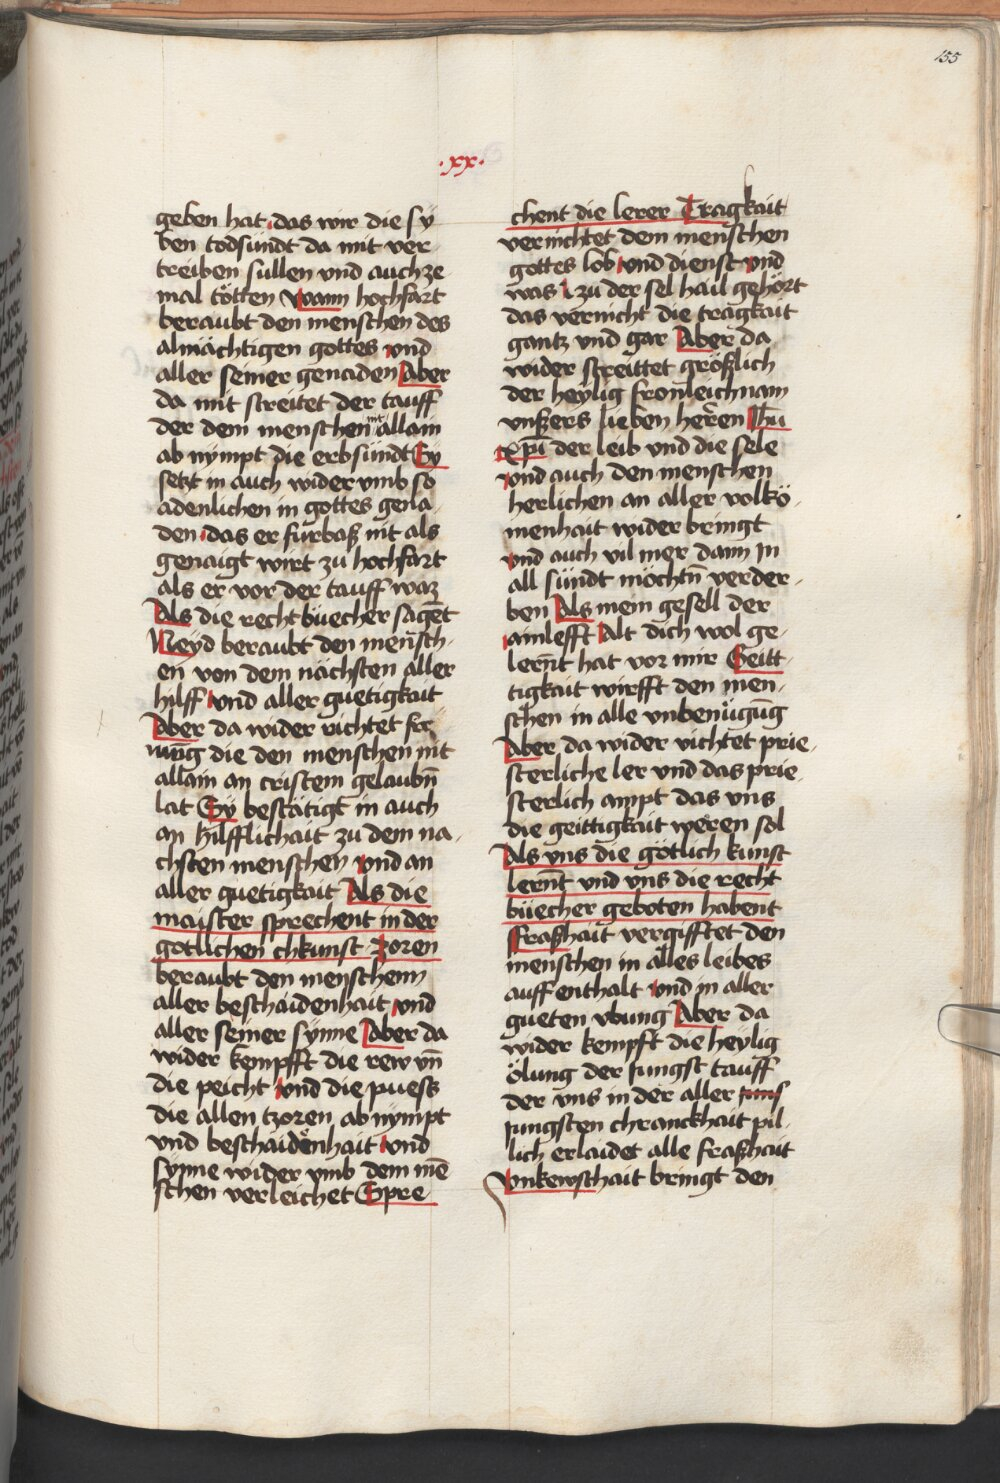 155
.xx.
geben hat das wir die sy
ben todsündt da mit ver
treiben sullen vnd auch ze
mal tötten Wann hochfart
beraubt den menschen des
almächtigen gottes vnd
aller seiner genaden Aber
da mit streitet der tauff
der dem menschen nit allain
ab nympt die erbsündt Ey
setzt in auch wider vmb so
adenlichen in gottes gena
den das er fürbaß nit als
genaigt wirt zu hochfart
als er vor der tauff waz
Als die recht büecher sagēt
Neyd beraubt den mensch-
en von dem nächsten aller
hilff vnd aller guetigkait
Aber da wider richtet fir
mūg die den menschen nit
allain an cristem gelaubn̄
lat Sÿ bestätigt in auch
an hilfflichait zu dem na-
chsten menschen vnd an
aller guetigkait Als die
maister sprechent in der
gotlichen chkunst Zoren
beraubt den menschenn
aller beschaidenhait vnd
aller seiner synne Aber da
wider kempfft die rew vn̄
die peicht vnd die puess
die allen tzoren ab nympt
vnd beschaidenhait vnd
synne wider vmb dem mē
schen verleichet Spre
chent die lerer Tragkait
vernichtet dem menschen
gottes lob vnd dienst vnd
was zu der sel hail gehört
das vernicht die tragkait
gantz vnd gar Aber da
wider streittet größlich
der heylig fronleichnam
vnßers lieben herren Jhū
Xpī der leib vnd die sele
vnd auch den menschen
herlichen an aller volkö-
menhait wider bringt
vnd auch vil mer dann in
all sündt möchtn̄ verder-
ben Als mein gesell der
ainlefft Alt dich wol ge-
lernt hat vor mir Geitt-
tigkait wirfft den men-
schen in alle vnbenügūg
Aber da wider richtet prie-
sterliche ler vnd das prie-
sterlich ampt das vns
die geittigkait weren sol
Als vns die götlich kunst
lernt vnd vns die recht
büecher geboten habent
Fraßhait vergifftet den
menschen in alles leibes
auff enthalt vnd in aller
gueten vbung Aber da
wider kempft die heylig
ölung der Jungst tauff
der vns in der aller
Jungsten chranckhait pil-
lich erlaidet alle fraßhait
Vnkewschait bringt den